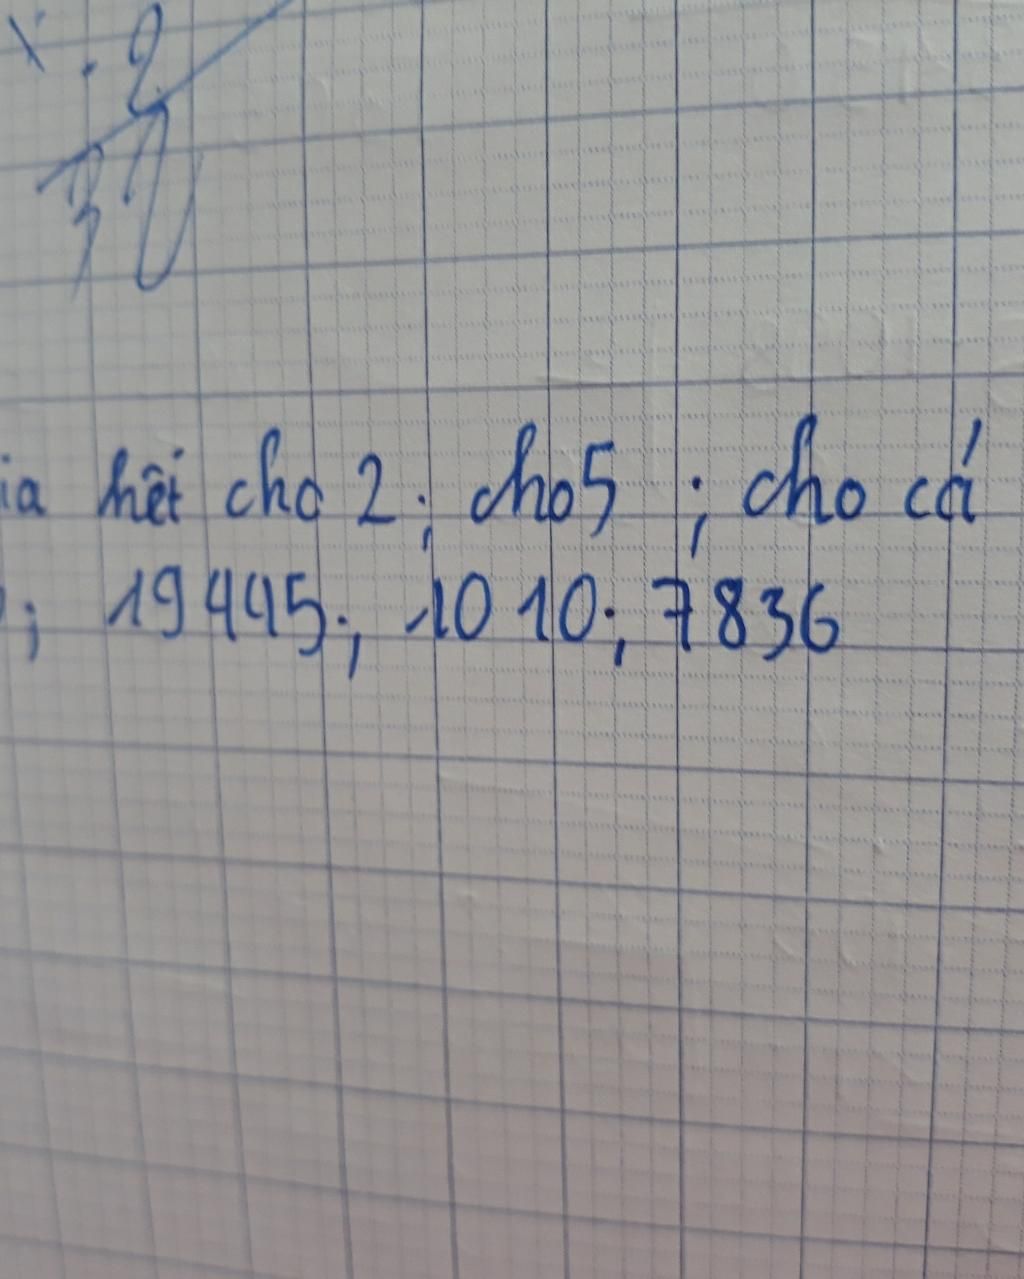 x . 2
ia hết cho 2; cho 5 ; cho cá
; 19445; 1010; 7836